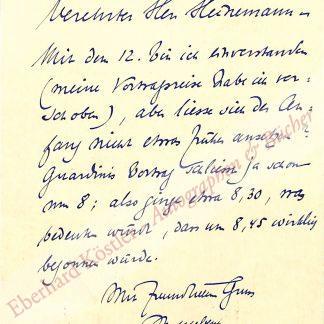 Verehrter Herr Heinemann –
Mit dem 12. bin ich einverstanden
(meine Vortragsreise habe ich ver-
schoben), aber liesse sich der An-
fang nicht etwas früher ansetzen?
Guardinis Vortrag schliesst ja schon
um 8; also ginge etwa 8,30, was
bedeuten würde, dass um 8,45 wirklich
begonnen würde.
Mit freundlichem Gruss
Eberhard Köstler Autographen & Bücher